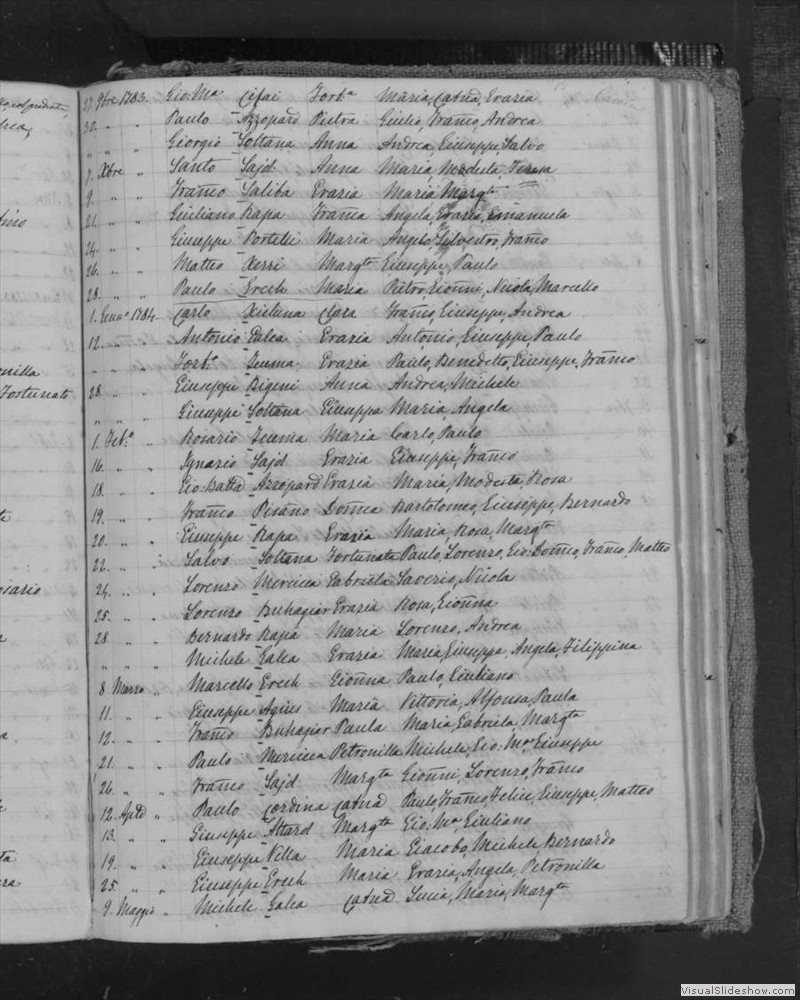 27. 9bre 1783. Gio: Ma Cifai Fort.a Maria, Catna, Grazia
30. " " Paulo Azzopard Pietra Giulio, Franco, Andrea
" " Giorgio Soltana Anna Andrea, Giuseppe, Salvo
7. Xbre " Santo Sajd Anna Maria Modesta, Teresa
9. " " Franco Saliba Grazia Maria Margta
21. " " Giuliano Rapa Franca Angela, Grazia, Emanuela
24. " " Giuseppe Portelli Maria Angelo, Silvestro, Franco
26. " " Matteo Xerri Margta Giuseppe, Paulo
28. " " Paulo Grech Maria Pietro, Gionni, Nicola, Marcello
1. Genno 1784. Carlo Xicluna Clara Franco, Giuseppe, Andrea
12. " " Antonio Galea Grazia Antonio, Giuseppe, Paulo
" " Fort.o Zeuma Grazia Paulo, Benedetto, Giuseppe, Franco
28. " " Giuseppe Bigeni Anna Andrea, Michele
" " Giuseppe Soltana Giuseppa Maria, Angela
1. Feb.o " Rosario Zeuma Maria Carlo, Paulo
16. " " Ignazio Sajd Grazia Giuseppe, Franco
18. " " Gio: Batta Azzopard Grazia Maria, Modesta, Rosa
19. " " Franco Pisano Domca Bartolomeo, Giuseppe, Bernardo
20. " " Giuseppe Rapa Grazia Maria, Rosa, Margta
22. " " Salvo Soltana Fortunata Paulo, Lorenzo, Gio: Domco, Franco, Matteo
24. " " Lorenzo Mercieca Gabriela Saverio, Nicola
25. " " Lorenzo Buhagiar Grazia Rosa, Gionna
28. " " Bernardo Rapa Maria Lorenzo, Andrea
" " Michele Galea Grazia Maria, Giuseppa, Angela, Filippina
8 Marzo " Marcello Grech Gionna Paulo, Giuliano
11. " " Giuseppe Agius Maria Vittoria, Alfonsa, Paula
12. " " Franco Buhagiar Paula Maria, Gabriela, Margta
21. " " Paulo Mercieca Petronilla Michele, Gio: Ma, Giuseppe
26. " " Franco Sajd Margta Gionni, Lorenzo, Franco
12. Aple " Paulo Cordina Catna Paulo, Franco, Felice, Giuseppe, Matteo
13. " " Giuseppe Attard Margta Gio: Ma, Giuliano
19. " " Giuseppe Vella Maria Giacobo, Michele, Bernardo
25. " " Giuseppe Grech Maria Grazia, Angela, Petronilla
9. Maggio " Michele Galea Catna Lucia, Maria, Margta
VisualSlideshow.com